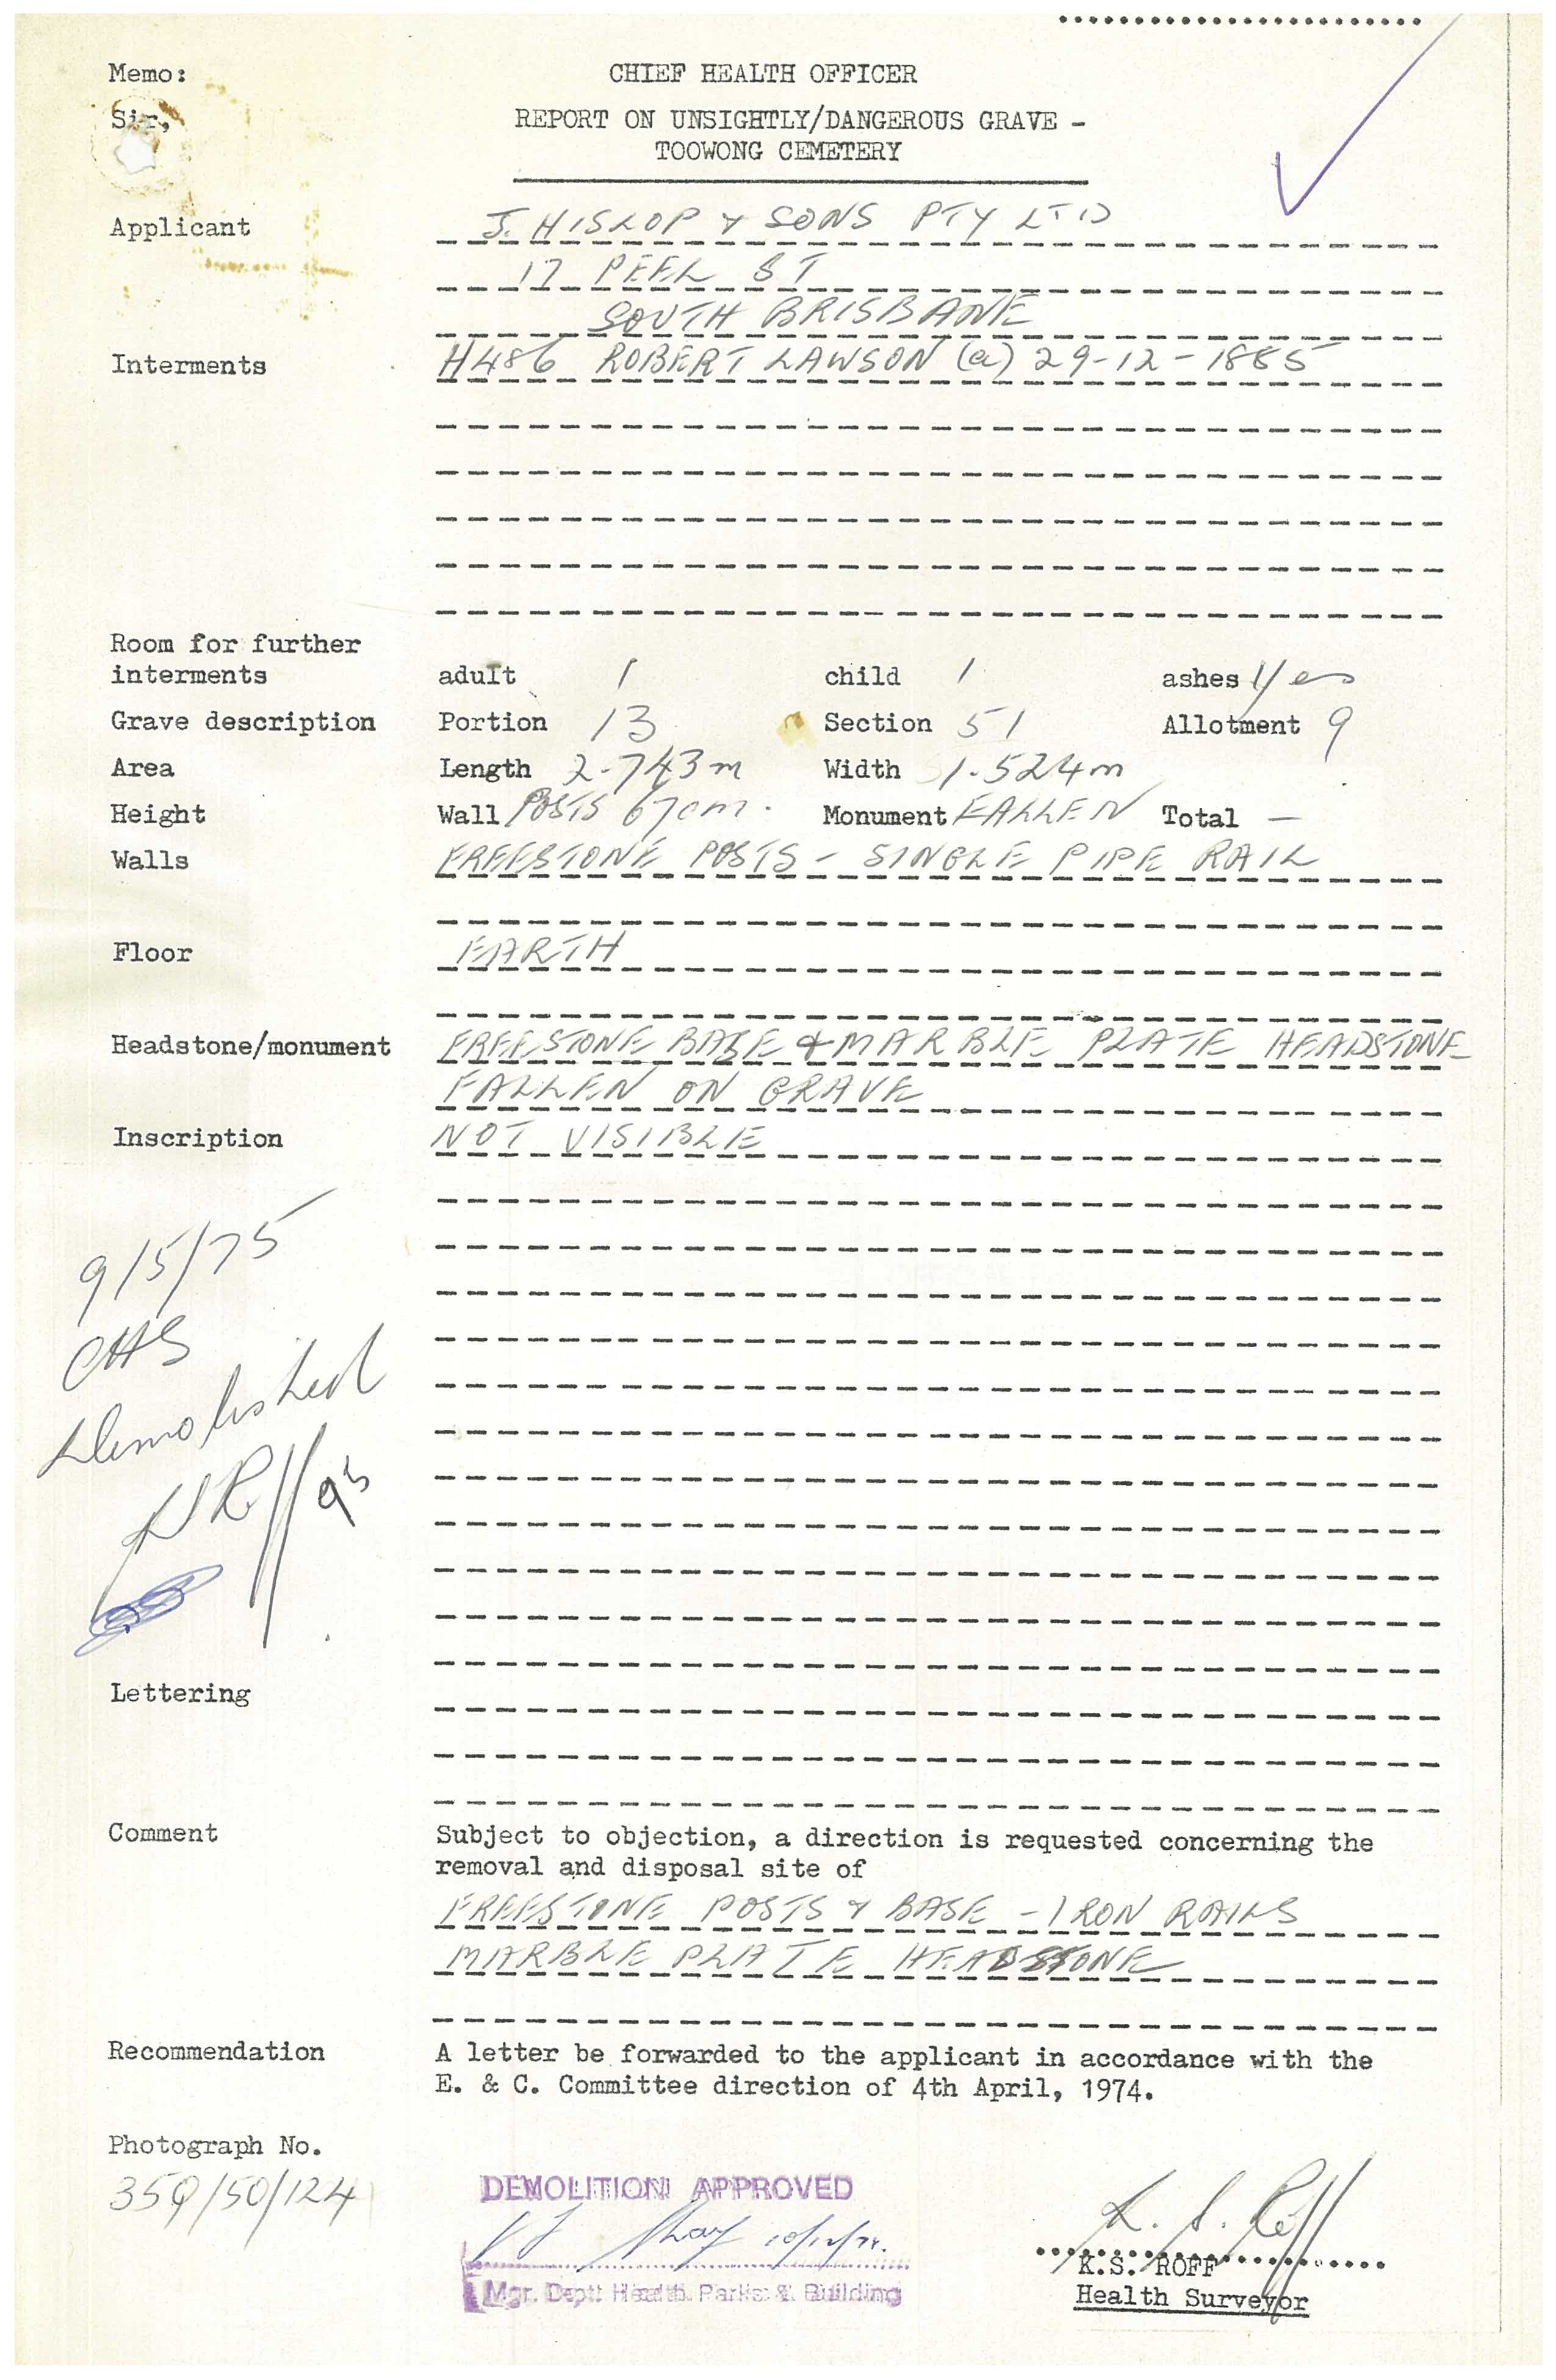 Memo:
CHIEF HEALTH OFFICER
Sir,
REPORT ON UNSIGHTLY/DANGEROUS GRAVE -
TOOWONG CEMETERY
Applicant J. HISLOP & SONS PTY LTD
17 PEEL ST
SOUTH BRISBANE
Interments H486 ROBERT LAWSON (a) 29-12-1885
Room for further
interments adult 1 child 1 ashes Yes
Grave description Portion 13 Section 51 Allotment 9
Area Length 2.743m Width 1.524m
Height Wall POSTS 67cm. Monument FALLEN Total —
Walls FREESTONE POSTS - SINGLE PIPE RAIL
Floor EARTH
Headstone/monument FREESTONE BASE & MARBLE PLATE HEADSTONE
FALLEN ON GRAVE
Inscription NOT VISIBLE
9/5/75
CHS
Demolished
Lettering
Comment Subject to objection, a direction is requested concerning the
removal and disposal site of
FREESTONE POSTS & BASE - IRON RAILS
MARBLE PLATE HEADSTONE
Recommendation A letter be forwarded to the applicant in accordance with the
E. & C. Committee direction of 4th April, 1974.
Photograph No.
35Q/50/124
DEMOLITION APPROVED
10/12/74.
Mgr. Dept. Health. Parks & Building
K. S. Roff
K.S. ROFF
Health Surveyor